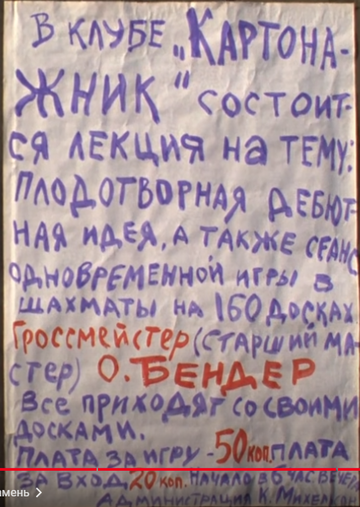 В КЛУБЕ „КАРТОНА-
ЖНИК" СОСТОИТ-
СЯ ЛЕКЦИЯ НА ТЕМУ:
ПЛОДОТВОРНАЯ ДЕБЮТ-
НАЯ ИДЕЯ, А ТАКЖЕ СЕАНС
ОДНОВРЕМЕННОЙ ИГРЫ В
ШАХМАТЫ НА 160 ДОСКАХ
Гроссмейстер (СТАРШИЙ МА-
СТЕР) О. БЕНДЕР
Все ПРИХОДЯТ СО СВОИМИ
ДОСКАМИ.
ПЛАТА ЗА ИГРУ - 50 коп. ПЛАТА
ЗА ВХОД 20 коп. НАЧАЛО В 6 ЧАС. ВЕЧЕРА
АДМИНИСТРАЦИЯ К. МИХЕЛЬСОН
амень >